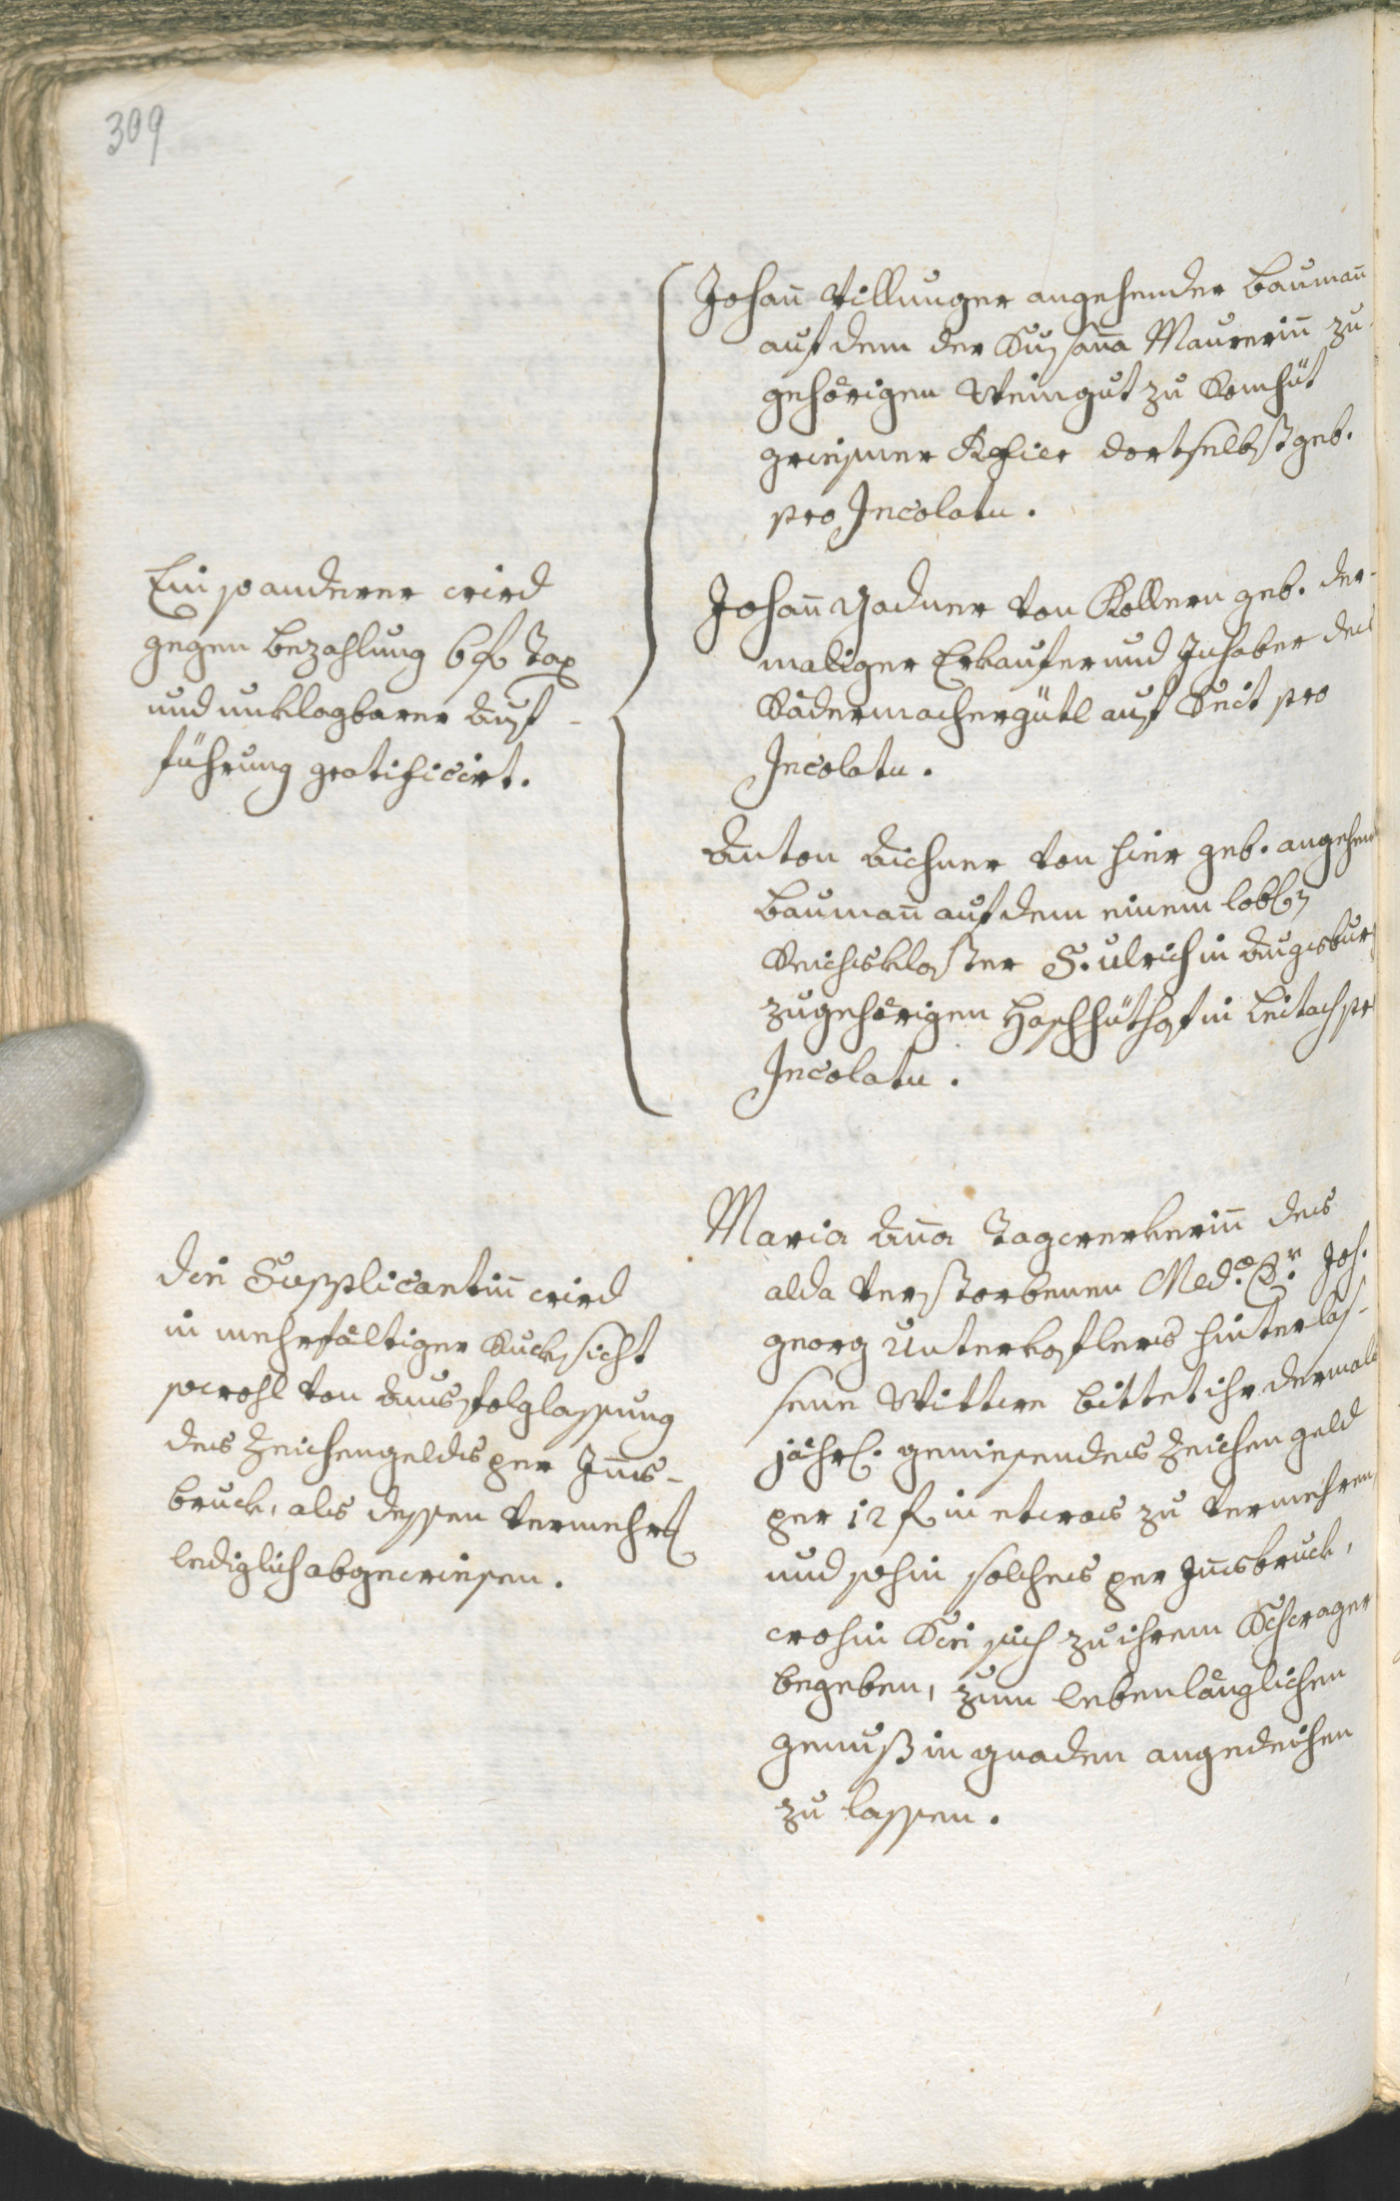 309
Johan̅ Villunger angehender Bauman̅
auf dem der Susan̅a Maurerin̅ zu-
gehörigen Weingut zu
dortselbst geb.
pro Incolatu.
Johan̅ Gadner von Kollern geb. der-
maliger Erkaufer und Inhaber des
Sadermachergütl auf Seit pro
Incolatu.
Anton Aichner von hier geb. angehend
Bauman̅ auf dem einem lobl.
Reichskloster S. Ulrich in Augsburg
zugehörigen in Leitach pro
Incolatu.
Ein so anderer wird
gegen Bezahlung 6 f Tax
und unklagbarer Auf-
führung gratificirt.
Maria An̅a Tagwerkerin̅ des
alda verstorbenen Med. Dr. Joh.
Georg Unterkoflers hinterlas-
sene Wittwe bittet ihr dermals
jährl. geniesendes Zeichengeld
per 12 f in etwas zu vermehren,
und sohin solches per In̅sbruck,
wohin Sie sich zu ihrem Schwager
begeben, zum lebenlänglichen
Genuß in Gnaden angedeihen
zu lassen.
Die Supplicantin̅ wird
in mehrfältiger Rucksicht
sowohl von Ausfolglassung
des Zeichengeldes per In̅s-
bruck, als dessen Vermehrg
lediglich abgewiesen.